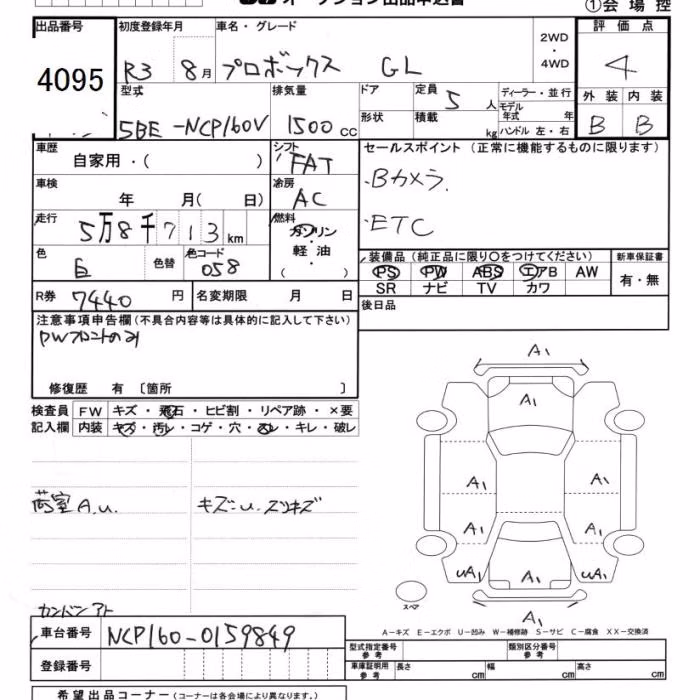 オークション出品申込書
①会場控
出品番号 4095
初度登録年月 R3 8月
車名・グレード プロボックス GL
2WD・4WD
評価点 4
型式 5BE-NCP160V
排気量 1500cc
ドア
形状
定員 5人
積載 kg
ディーラー・並行
モデル年式 年
ハンドル 左・右
外装 B
内装 B
車歴 自家用・( )
シフト FAT
車検 年 月( 日)
冷房 AC
走行 5万8千713km
燃料 ガソリン 軽油
色 白 色替
色コード 058
R券 7440円
名変期限 月 日
セールスポイント (正常に機能するものに限ります)
・Bカメラ
・ETC
装備品 (純正品に限り○をつけてください)
PS PW ABS エアB AW
SR ナビ TV カワ
新車保証書
有・無
後日品
注意事項申告欄(不具合内容等は具体的に記入して下さい)
PWフロントのみ
修復歴 有 〔箇所 〕
検査員記入欄
FW キズ・飛石・ヒビ割・リペア跡・×要
内装 キズ・汚レ・コゲ・穴・スレ・キレ・破レ
荷室A.u.
キズ:u.スリキズ
A1
A1
A1 A1
A1 A1
uA1 A1 uA1
A1
スペア
A-キズ E-エクボ U-凹み W-補修跡 S-サビ C-腐食 XX-交換済
車台番号 NCP160-0159849
登録番号
型式指定番号 参考
類別区分番号 参考
車庫証明用 参考 長さ cm 幅 cm 高さ cm
希望出品コーナー (コーナーは各会場により異なります。)